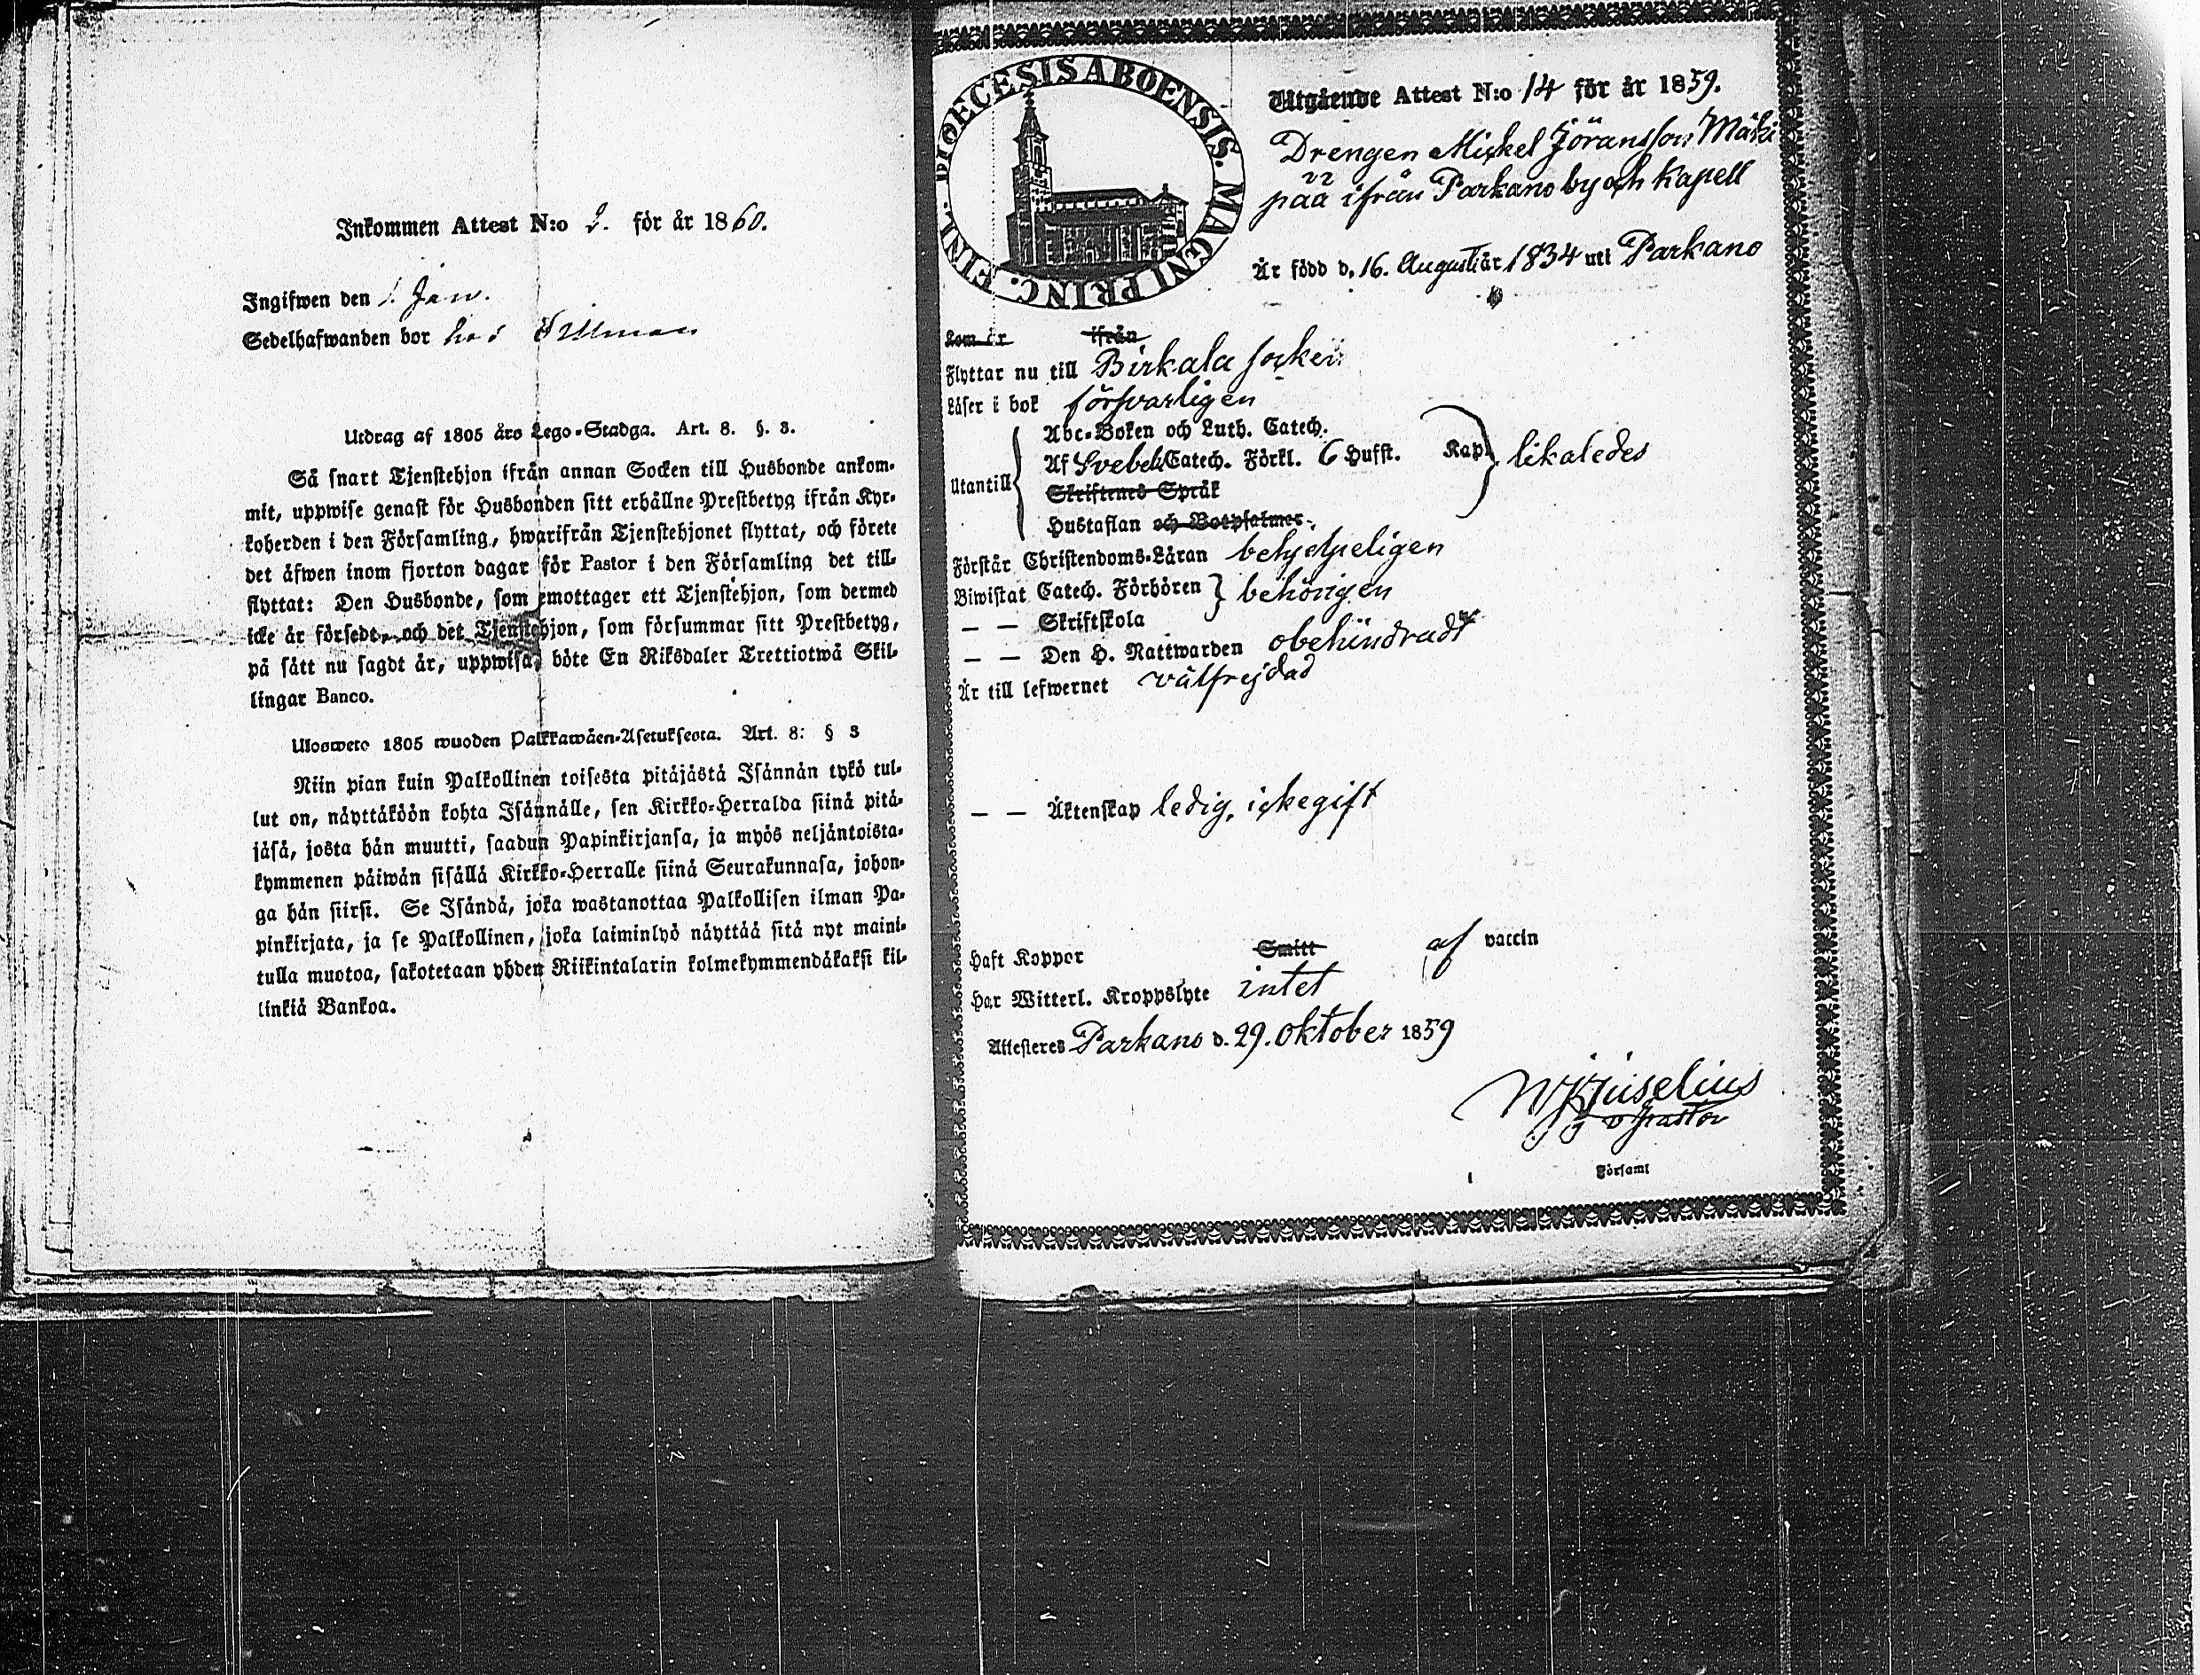 Inkommen Attest N:o 2. för år 1860.
Ingifwen den 1. Jan.
Sedelhafwanden bor hos
Utdrag af 1805 års Lego-Stadga. Art. 8. §. 3.
Så snart Tjenstehjon ifrån annan Socken till Husbonde ankom-
mit, uppwise genast för Husbonden sitt erhållne Prestbetyg ifrån Kyr-
koherden i den Församling, hwarifrån Tjenstehjonet flyttat, och förete
det äfwen inom fjorton dagar för Pastor i den Församling det till-
flyttat: Den Husbonde, som emottager ett Tjenstehjon, som dermed
icke är försedt, och det Tjenstehjon, som försummar sitt Prestbetyg,
på sätt nu sagdt är, uppwisa, böte En Riksdaler Trettiotwå Skil-
lingar Banco.
Ulosweto 1805 wuoden Palkkawäen-Asetuksesta. Art. 8: § 3
Niin pian kuin Palkollinen toisesta pitäjästä Isännän tykö tul-
lut on, näyttäköön kohta Isännälle, sen Kirkko-Herralda siinä pitä-
jäsä, josta hän muutti, saadun Papinkirjansa, ja myös neljäntoista-
kymmenen päiwän sisällä Kirkko-Herralle siinä Seurakunnasa, johon-
ga hän siirsi. Se Isändä, joka wastanottaa Palkollisen ilman Pa-
pinkirjata, ja se Palkollinen, joka laiminlyö näyttää sitä nyt maini-
tulla muotoa, sakotetaan yhden Riikintalarin kolmekymmendäkaksi kil-
linkiä Bankoa.
DIOECESIS ABOENSIS. MAGNI PRINC. FINL.
Utgående Attest N:o 14 för år 1859.
Drengen Mickel Jöransson Mäki
pää ifrån Parkano by och Kapell
Är född d. 16. Augusti år 1834 uti Parkano
Som är ifrån
Flyttar nu till Birkala socken
Läser i bok försvarligen
Abc-Boken och Luth. Catech.
Utantill Af Svebel. Catech. Förkl. 6 Hufst. Kap. likaledes
Skriftenes Språk
Hustaflan och Botpsalmer.
Förstår Christendoms-Läran behjelpeligen
Biwistat Catech. Förhören behörigen
— — Skriftskola
— — Den H. Nattwarden obehindradt
Är till lefwernet välfrejdad
— — Äktenskap ledig, ickegift
Haft Koppor Smitt af vaccin
Har Witterl. Kroppslyte intet
Attesteres Parkano d. 29. Oktober 1859
Juselius
v pastor
Församl